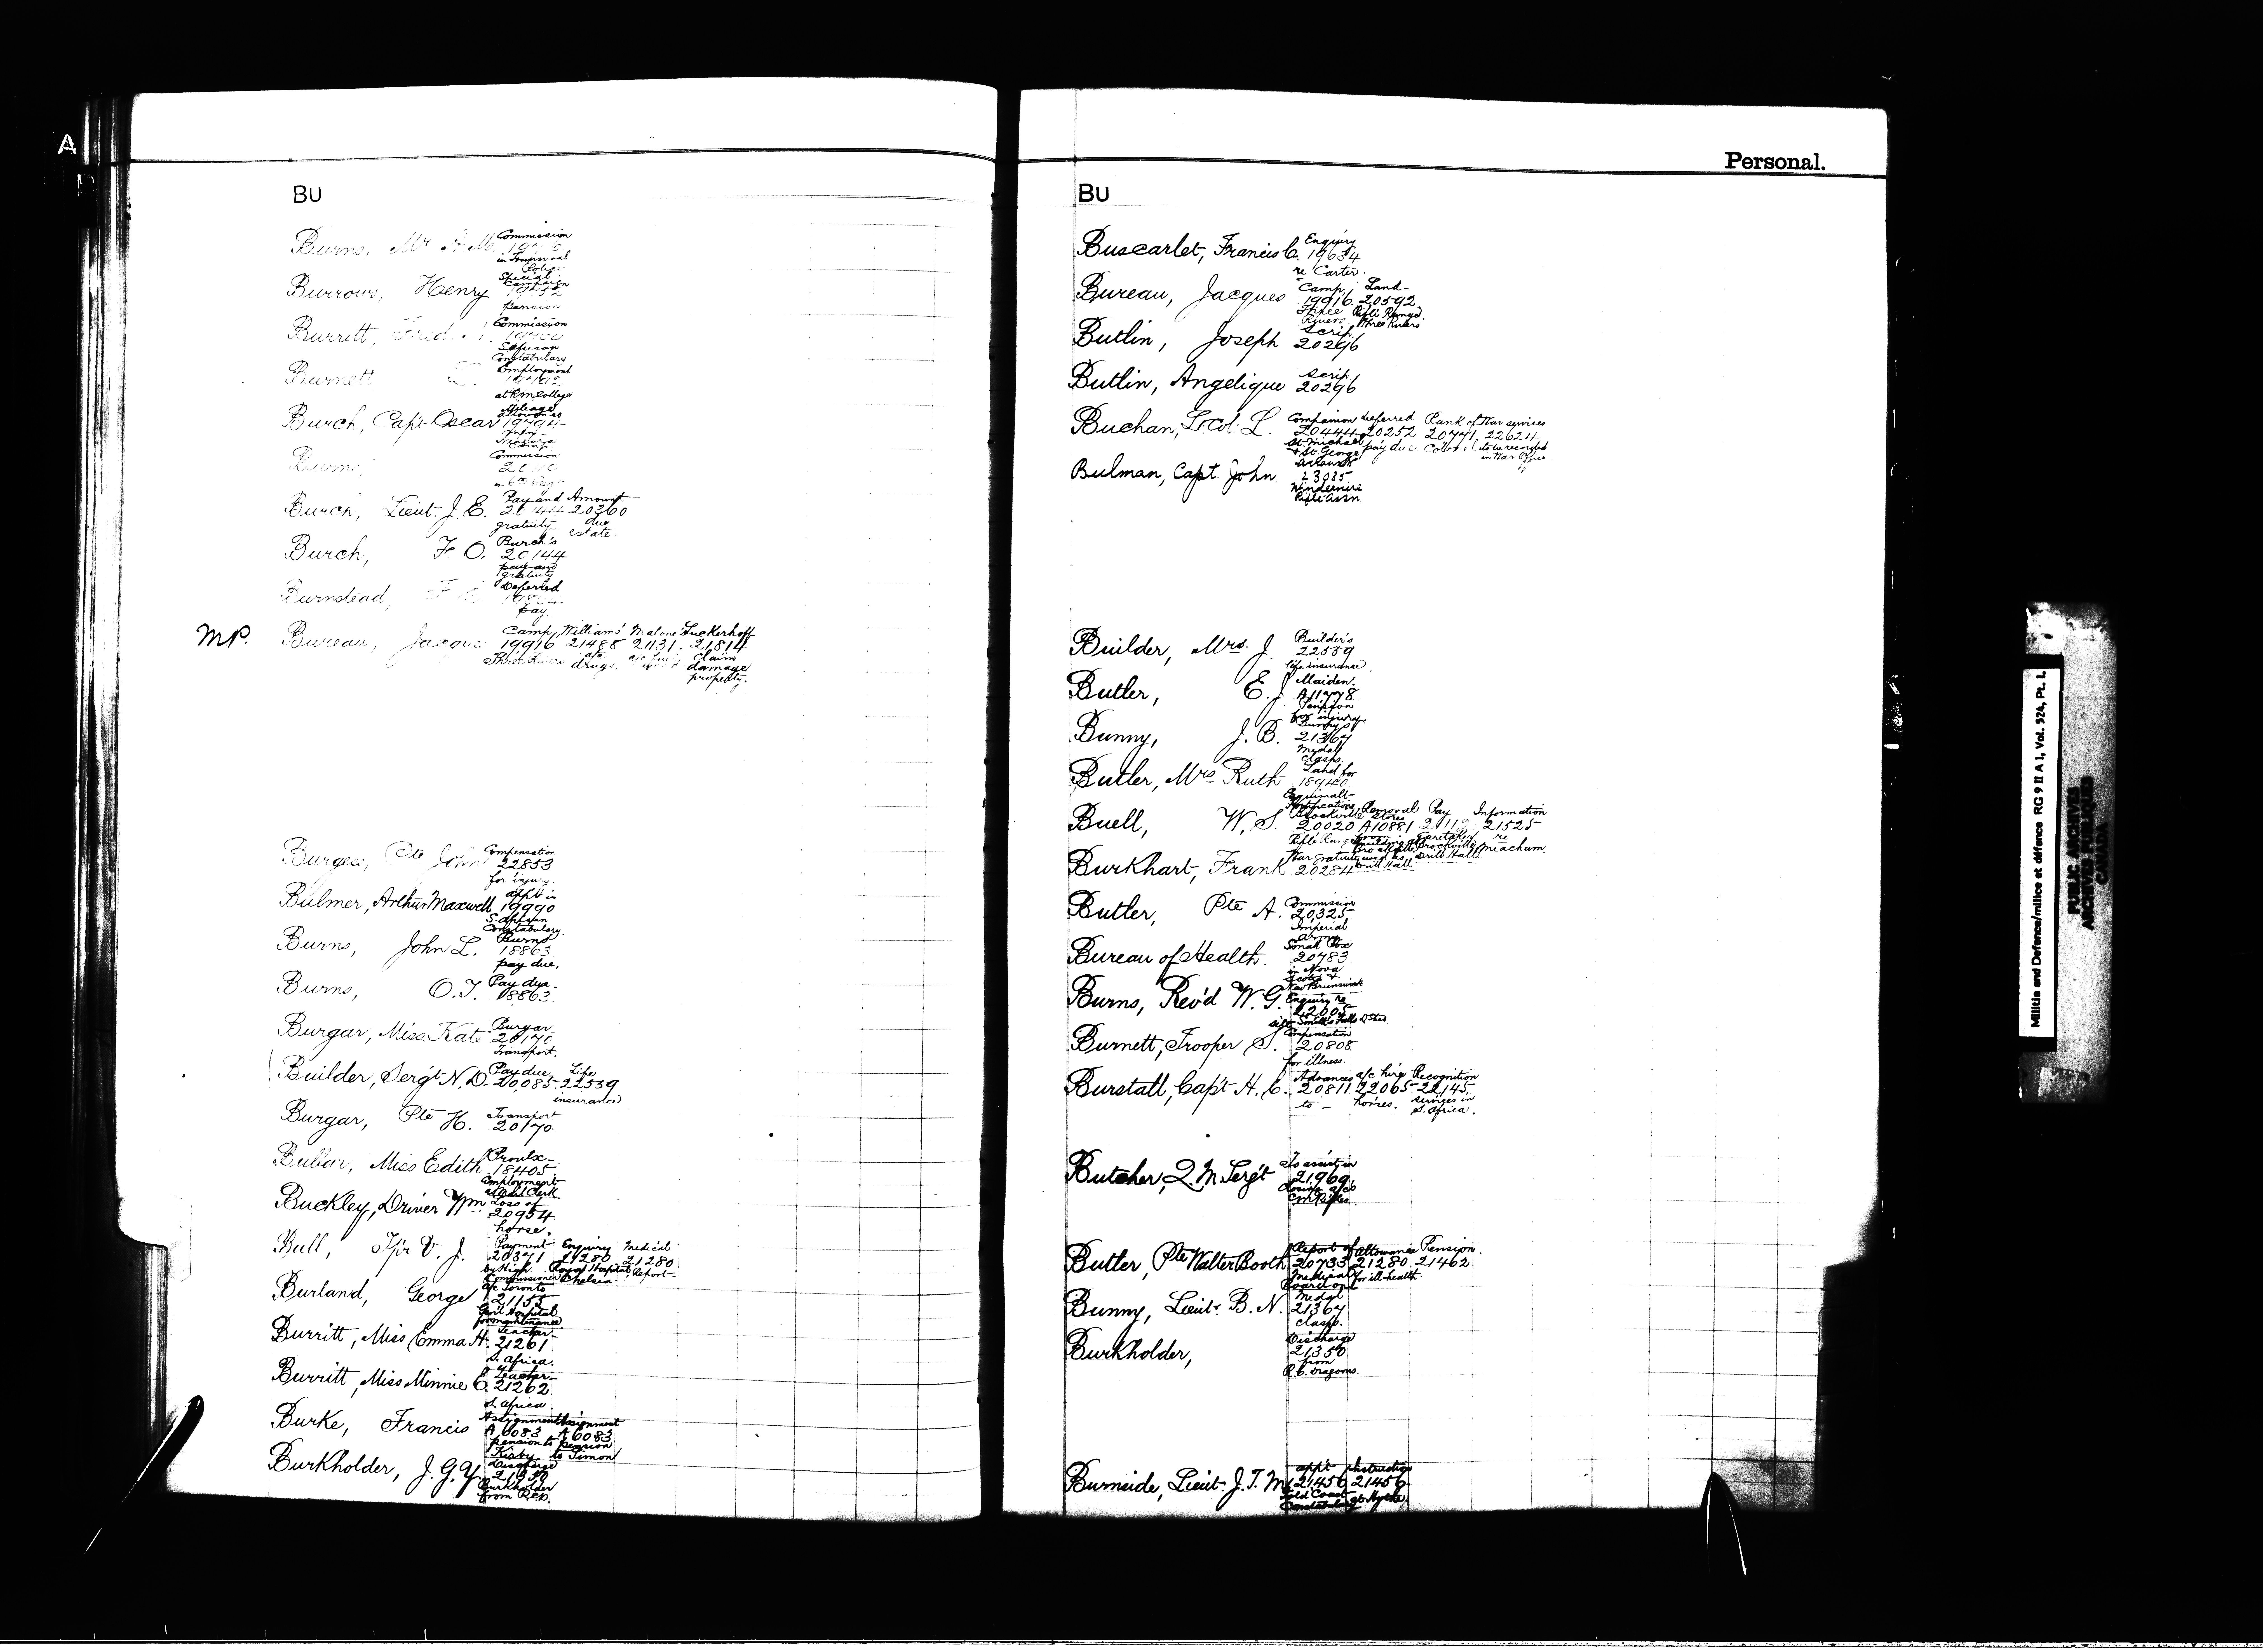 A
BU
Burns, Mr
Commission
in Transvaal
Police
Special
Burrows, Henry
pension
Burritt, Fred.
Commission
S. African
Constabulary
Burnett
Employment
at R M College
Mileage
allowance
Burch, Capt. Oscar 19794
Burns
Commission
Pay and Amount
Burch, Lieut. J. E. 20144 20360
gratuity due
estate.
Burch's
Burch, F. O. 20144
pay and
gratuity
Deferred
Burnstead, F
pay
Camp, Williams' Malone Luckerhoff
MP. Bureau, Jacques 19916 21488 21131. 21814
Three Rivers a/c drugs. Claim
damage
property.
Compensation
Burgess, Pte John 22853
for injury.
appt in
Bulmer, Arthur Maxwell 19990
S. African
Constabulary.
Burns
Burns, John L. 18863
pay due.
Pay due
Burns, O. T. 18863
Burgar
Burgar, Miss Kate 20170
Transport.
Pay due Life
Builder, Sergt N. D. 20,085 22539
insurance
Transport
Burgar, Pte H. 20170
Proulx
Bullar, Miss Edith 18405
Employment
Loss of
Buckley, Driver Wm 20954
horse.
Payment Enquiry Medical
Bull, Tpr V. J. 20371 21280 21280
by High Royal Hospital Report
Commissioner Chelsea.
a/c Toronto
Burland, George 21155
Genl Hospital
for maintenance
Teacher
Burritt, Miss Emma H. 21261
S. Africa.
Teacher
Burritt, Miss Minnie E. 21262
S. Africa
Assignment Assignment
Burke, Francis A 6083 A 6083
pension to pension
Kirby to Simon
Discharge
Burkholder, J. G. Y. 21350
Burkholder
from R.C.D.
Personal.
BU
Enquiry
Buscarlet, Francis C. 19634
re Carter.
Camp, Land
Bureau, Jacques 19916 20592
Three Rifle Range,
Rivers. Three Rivers
Scrip
Butlin, Joseph 20296
Scrip
Butlin, Angelique 20296
Companion Deferred Rank of War services
Buchan, Lt. Col. L. 20444 20252 20771 22624
St. Michael pay due. Colonel to be recorded
& St. George in War Office
Bulman, Capt. John 23035
Windermere
Rifle Assn.
Builder's
Builder, Mrs. J. 22539
life insurance
Maiden
Butler, E. J. A11778
Pension
for injury
Bunny's
Bunny, J. B. 21367
medal
clasps.
Land for
Butler, Mrs Ruth 18940
Esquimalt
fortifications
Brockville Removal Pay Information
Buell, W. S. 20020 A10881 21525
Caretaker re
Brockville Meachum.
Drill Hall
War gratuity
Burkhart, Frank 20284
Commission
Butler, Pte A. 20325
Imperial
Army
Small Pox
Bureau of Health. 20783
in Nova
Scotia &
New Brunswick
Enquiry re
Burns, Rev'd W. G. 22005
Smith's Falls
Compensation
Burnett, Trooper S. 20808
for illness.
Advances a/c hire Recognition
Burstall, Capt H. E. 20811 22065 22145
to horses. services in
S. Africa.
To assist in
Butcher, Q. M. Sergt 21,969
closing a/cs
C.M. Rifles
Report of Allowance Pension
Butler, Pte Walter Booth 20733 21280 21462
Medical for ill-health.
Board on
Medal
Bunny, Lieut. B. N. 21367
clasp.
Discharge
Burkholder, 21350
from
R. C. Dragoons.
appt Instruction
Burnside, Lieut. J. T. M. 21456 21456
Gold Coast at Hythe
Constabulary
Militia and Defence/milice et défence RG 9 II A 1, Vol. 524, Pt. 1.
PUBLIC ARCHIVES
ARCHIVES PUBLIQUES
CANADA